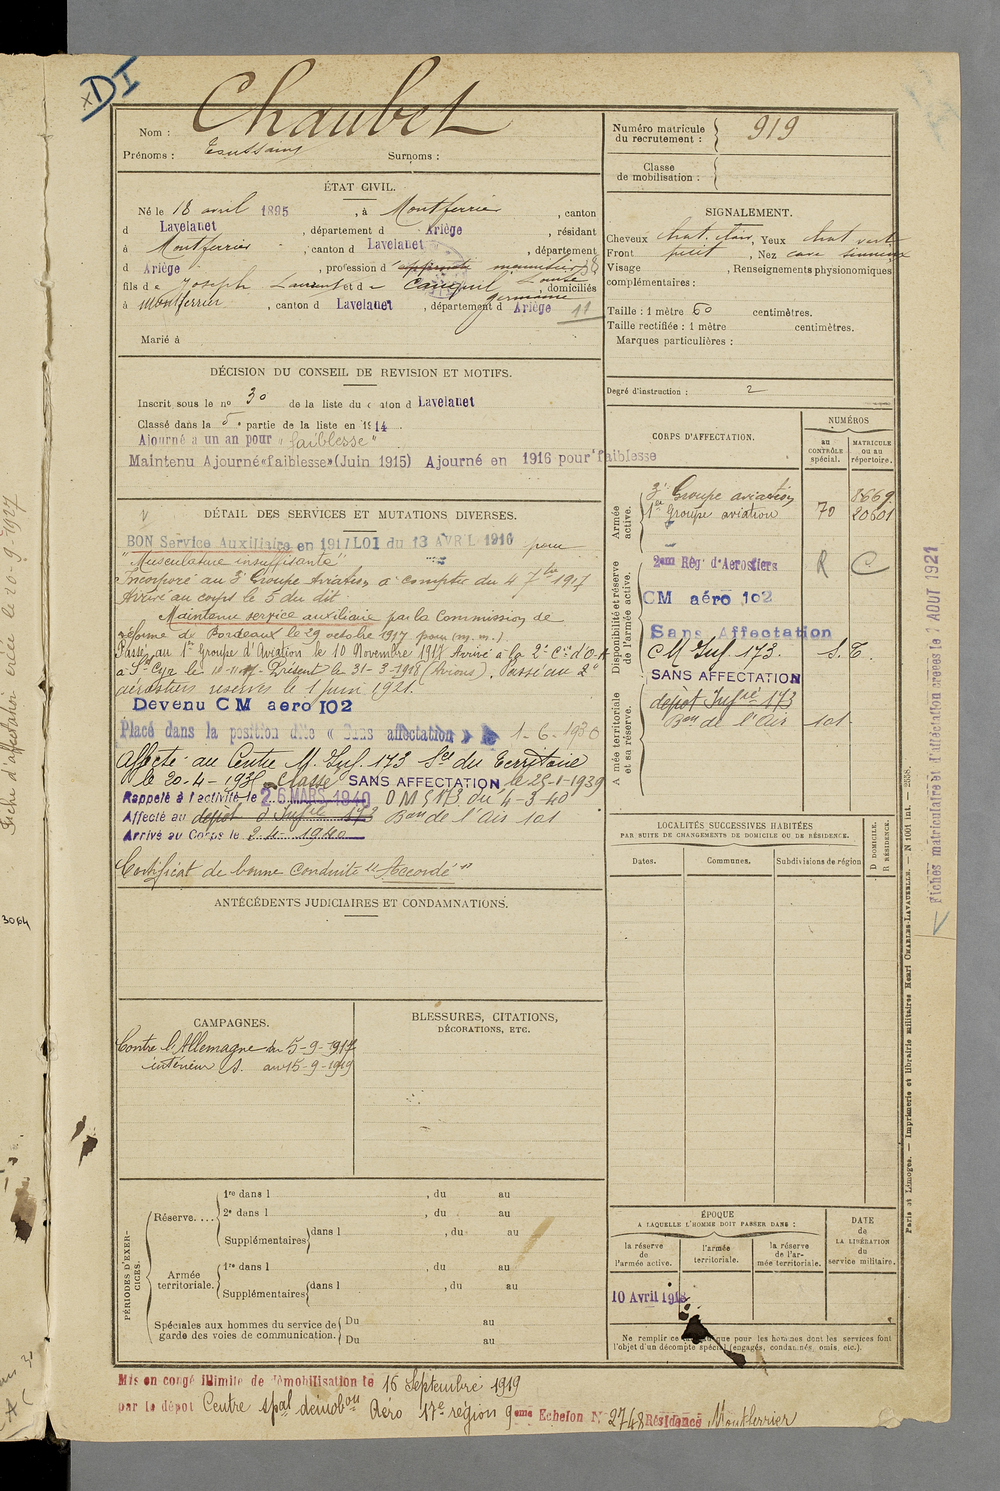 DI
Nom : Chaubet
Prénoms : Toussaint Surnoms :
Numéro matricule du recrutement : 919
Classe de mobilisation :
ÉTAT CIVIL.
Né le 18 avril 1895, à Montferrier, canton
d Lavelanet, département d Ariège, résidant
à Montferrier, canton d Lavelanet, département
d Ariège, profession d'
fils de Joseph Laurent et d Louise germaine, domiciliés
à Montferrier, canton d Lavelanet, département d Ariège 11
Marié à
SIGNALEMENT.
Cheveux chat. clair, Yeux chat vert
Front petit, Nez cave sinueux
Visage , Renseignements physionomiques
complémentaires :
Taille : 1 mètre 60 centimètres.
Taille rectifiée : 1 mètre centimètres.
Marques particulières :
Degré d'instruction : 2
DÉCISION DU CONSEIL DE REVISION ET MOTIFS.
Inscrit sous le no 30 de la liste du canton d Lavelanet
Classé dans la 5e partie de la liste en 1914
Ajourné a un an pour "faiblesse"
Maintenu Ajourné «faiblesse» (Juin 1915) Ajourné en 1916 pour faiblesse
DÉTAIL DES SERVICES ET MUTATIONS DIVERSES.
BON Service Auxiliaire en 1917 LOI du 13 AVRIL 1916 pour
"Musculature insuffisante"
Incorporé au 3e Groupe Aviation à compter du 4 7bre 1917
Arrivé au corps le 5 du dit.
Maintenu service auxiliaire par la Commission de
réforme de Bordeaux le 29 octobre 1917 pour (m. m.).
Passé au 1er Groupe d'Aviation le 10 Novembre 1917 Arrivé à la 2e Cie d'O.A
à St Cyr le Présent le 31-3-1918 (Avions). Passé au 2e
aérostiers réserves le 1 Juin 1921.
Devenu CM aero 102
Placé dans la position dite « Sans affectation » le 1-6-1930
Affecté au Centre M. Inf. 173 Son du Territoire
le 20-4-193 Classé SANS AFFECTATION le 25-1-1939
Rappelé à l'activité le 26 MARS 1940 O M S 173 du 4-3-40
Affecté au dépôt d'Infie 173 Bon de l'air 101
Arrivé au Corps le 2.4.1940
Certificat de bonne conduite "Accordé"
CORPS D'AFFECTATION.
NUMÉROS
AU CONTRÔLE spécial.
MATRICULE OU AU répertoire.
Armée active.
3e Groupe aviation 8669
1er Groupe aviation 70 20601
Disponibilité et réserve de l'armée active.
2eme Rég' d'Aerostiers R C
CM aéro 102
Sans Affectation
CM Inf 173. S.T.
SANS AFFECTATION
Armée territoriale et sa réserve.
dépôt Infie 173
Bon de l'air 101
LOCALITÉS SUCCESSIVES HABITÉES
PAR SUITE DE CHANGEMENTS DE DOMICILE OU DE RÉSIDENCE.
Dates. Communes. Subdivisions de région
D DOMICILE.
R RÉSIDENCE.
ANTÉCÉDENTS JUDICIAIRES ET CONDAMNATIONS.
CAMPAGNES.
Contre l'Allemagne du 5-9-1917
intérieur S. au 15-9-1919
BLESSURES, CITATIONS,
DÉCORATIONS, ETC.
PÉRIODES D'EXERCICES.
Réserve....
1re dans l , du au
2e dans l , du au
Supplémentaires dans l , du au
Armée territoriale.
1re dans l , du au
Supplémentaires dans l , du au
Spéciales aux hommes du service de garde des voies de communication.
Du au
Du au
ÉPOQUE
A LAQUELLE L'HOMME DOIT PASSER DANS :
la réserve de l'armée active.
l'armée territoriale.
la réserve de l'armée territoriale.
DATE de LA LIBÉRATION du service militaire.
10 Avril 1918
Ne remplir ce tableau que pour les hommes dont les services font
l'objet d'un décompte spécial (engagés, condamnés, omis, etc.).
Mis en congé illimité de démobilisation le 16 Septembre 1919
par le dépot Centre spal démobon Aéro 17e région 9eme Echelon No 2748 Résidence Montferrier
Paris et Limoges. — Imprimerie et librairie militaires Henri CHARLES-LAVAUZELLE. — N 1001 int. — 2558.
Fiches matriculaire et d'affectation créées le 1 AOUT 1921
Fiche d'affectation créée le 20-9-1927
3064